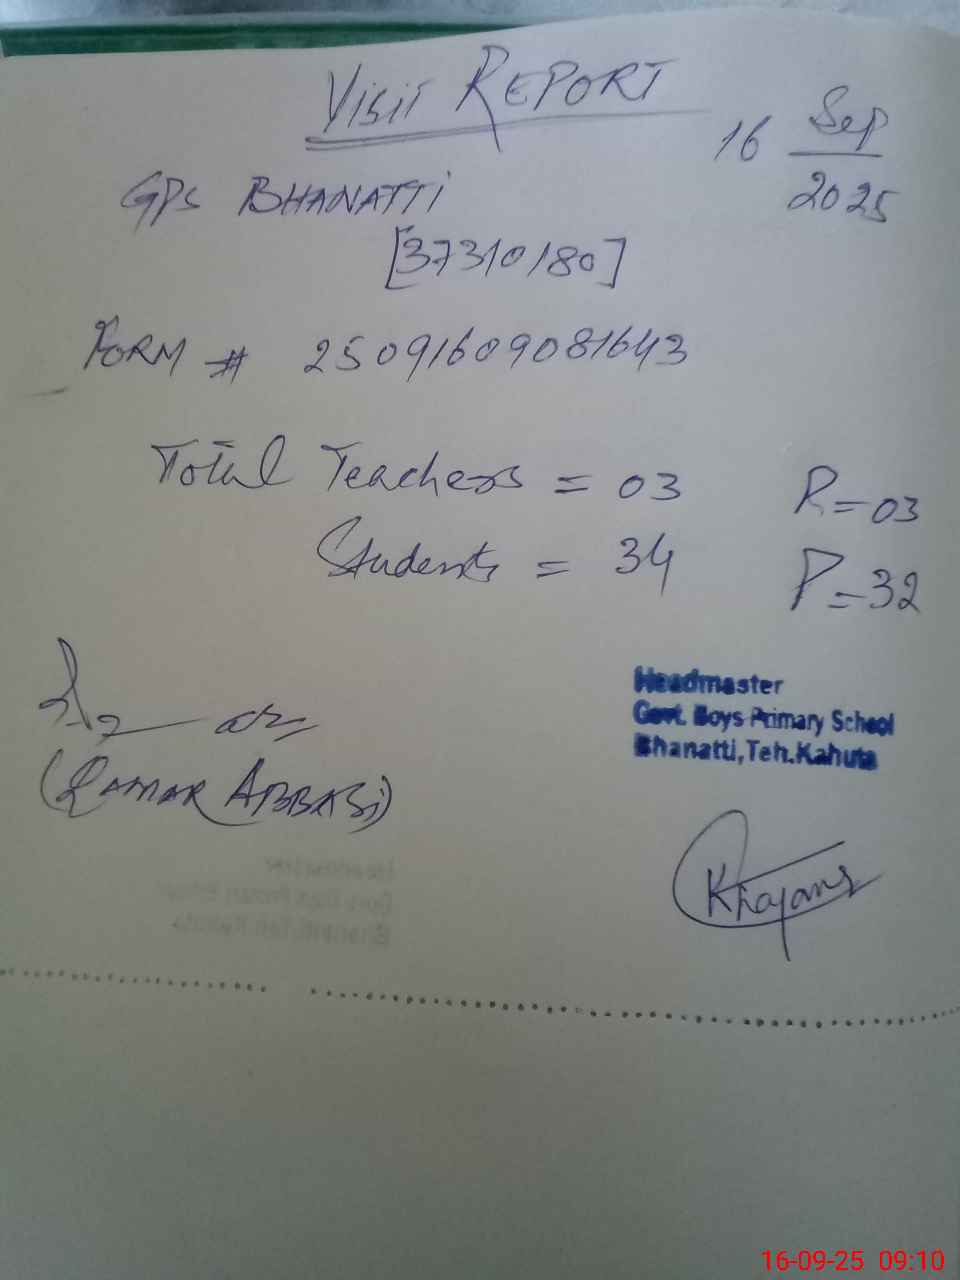 Visit REPORT
16 Sep
2025
GPS BHANATTi
[37310180]
FORM # 25091609081643
Total Teachers = 03 P=03
Students = 34 P=32
(QAMAR ABBASi)
Headmaster
Govt. Boys Primary School
Bhanatti, Teh. Kahuta
16-09-25 09:10